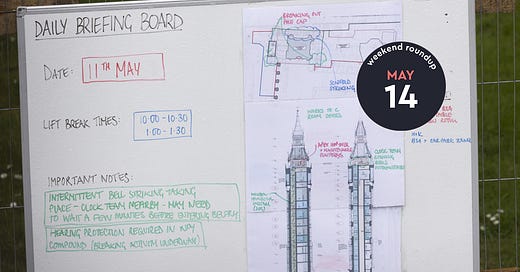 DAILY BRIEFING BOARD
DATE:
11TH MAY
LIFT BREAK TIMES:
10:00 - 10:30
1:00 - 1:30
IMPORTANT NOTES:
INTERMITTENT BELL STRIKING TAKING
PLACE - CLOCK TEAM NEARBY - MAY NEED
TO WAIT A FEW MINUTES BEFORE ENTERING BELFRY
HEARING PROTECTION REQUIRED IN
COMPOUND (BREAKING ACTIVITY UNDERWAY)
BREAKING OUT
PILE CAP
SCAFFOLD
STRIKING
weekend roundup
MAY
14
CLOCK TEAM